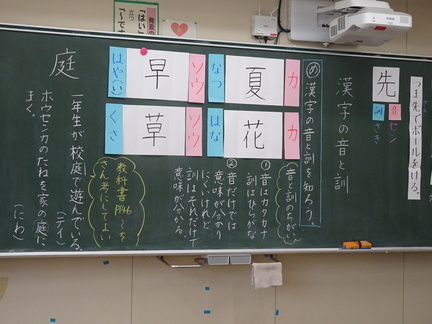 つま先でボールをける。
先
音
セン
訓
さき
漢字の音と訓
め 漢字の音と訓を知ろう。
音と訓のちがい
① 音はカタカナ
訓はひらがな
② 音だけでは
意味が分かり
にくいけれど
訓はそれだけで
意味が分かる。
カ
夏
なつ
カ
花
はな
ソウ
早
はや(い)
ソウ
草
くさ
教科書P146〜を
さん考にしてよい
庭
一年生が校庭で遊んでいる。
(テイ)
ホウセンカのたねを家の庭に
まく。
(にわ)
「はい」